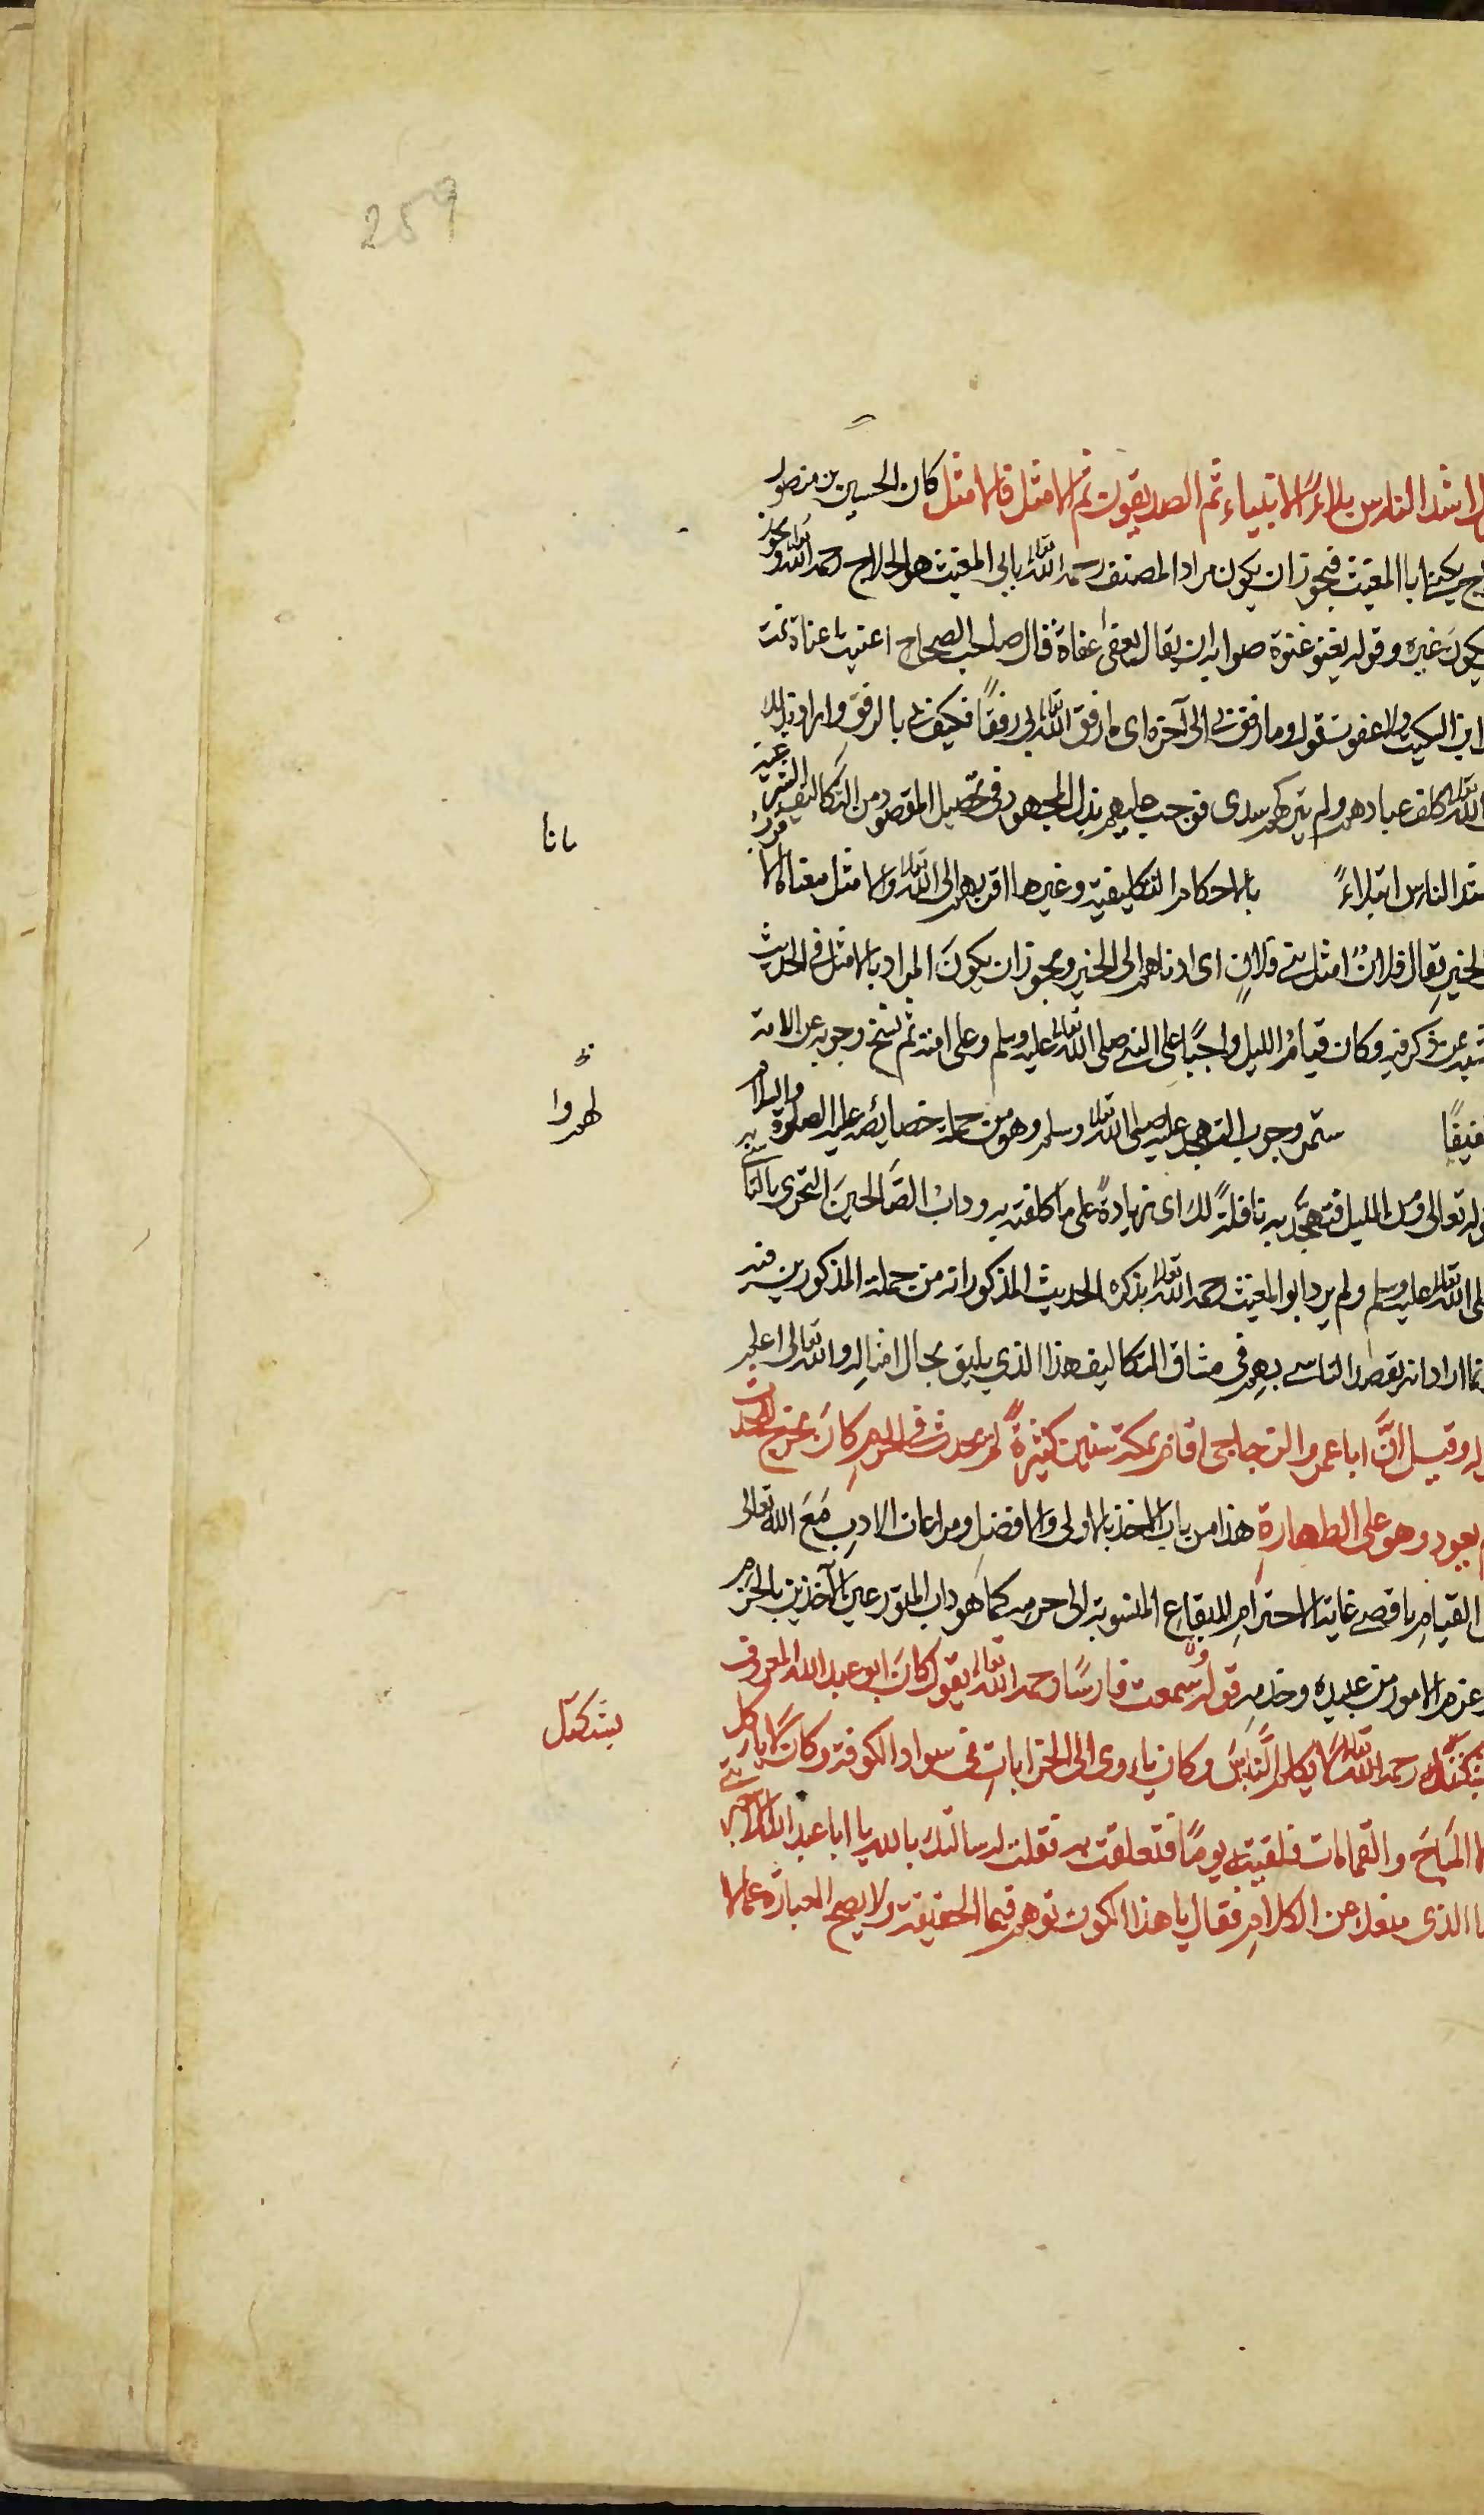 259
اشد الناس بلاءً الانبياء ثم الصديقون ثم الامثل فالامثل كان الحسين بن منصور
يكنى با المغيث فيجوز ان يكون مراد المصنف رحمه الله تعالى بابي المغيث هو الحلاج رحمه الله تعالى ويجوز
يكون غيره وقوله يغفو غفوة صوابه ان يقال يغفى اغفاة قال صاحب الصحاح اغفيت اغفاة نمت
ابن السكيت ولا غفوت تقول وما رفق بي الى آخره اى ما رفق الله تعالى بى رفقًا فكيف لى بالرفق واراد بذلك
الله تعالى كلف عباده ولم يتركهم سدى فوجب عليهم بذل المجهود فى تحصيل المقصود من التكاليف الشرعية
مانا
الناس ابتلاءً بالاحكام التكليفية وغيرها اقربهم الى الله تعالى والامثل معناه الا
الخير يقال فلانٌ امثل بنى فلانٍ اى ادناهم الى الخير ويجوز ان يكونَ المراد بالامثل فى الحديث
من ذكر فيه وكان قيامُ الليل واجبًا على النبى صلى الله تعالى عليه وسلم وعلى امته ثم نسخ وجوبه عن الامة
لهدوا
ستمر وجوب التهجد عليه صلى الله تعالى وسلم وهو من جملة خصائصه عليه الصلوة والسلام
تعالى ومن الليل فتهجّد به نافلةً لك اى زيادةً على ما كلفته به وداب الصَّالحينَ التحرى بالتاسى به
الله تعالى عليه وسلم ولم يرد ابو المغيث رحمه الله تعالى بذكره الحديث المذكور انه من جملة المذكورين فيه
اراد انه يقصد التاسى بهم فى مشاق التكاليف هذا الذي يليق بحال امثاله والله تعالى اعلم
وقيل انَّ ابا عمرو الزجاجى اقام بمكة سنين كثيرةً لم يحدث فى الحرم كانَ يخرج للحدث
يعود وهو على الطهارةِ هذا من باب الاخذ بالاولى والافضل ومراعات الادبِ مَعَ الله تعالى
القيامِ باقصى غاية الاحترامِ للبقاعِ المنسوبة الى حرمه كما هو داب المتورعين الآخذين بالحزم
عزم الامور من عبيده وخدمه قوله وسمعت فارسًا رحمه الله تعالى يقول كانَ ابو عبد الله المعروف
بشكثل
رحمه الله تعالى لا يكلم النَّاسَ وكان ياءوى الى الخرابات فى سواد الكوفة وكانَ لا ياكل
المباحَ والقمامات فلقيته يومًا فتعلقت به فقلت له سالتك بالله يا ابا عبد الله الا تخبرنى
الذى منعك عن الكلامِ فقال يا هذا الكون توهم فيما الحقيقة ولا يصح العبارة عما لا